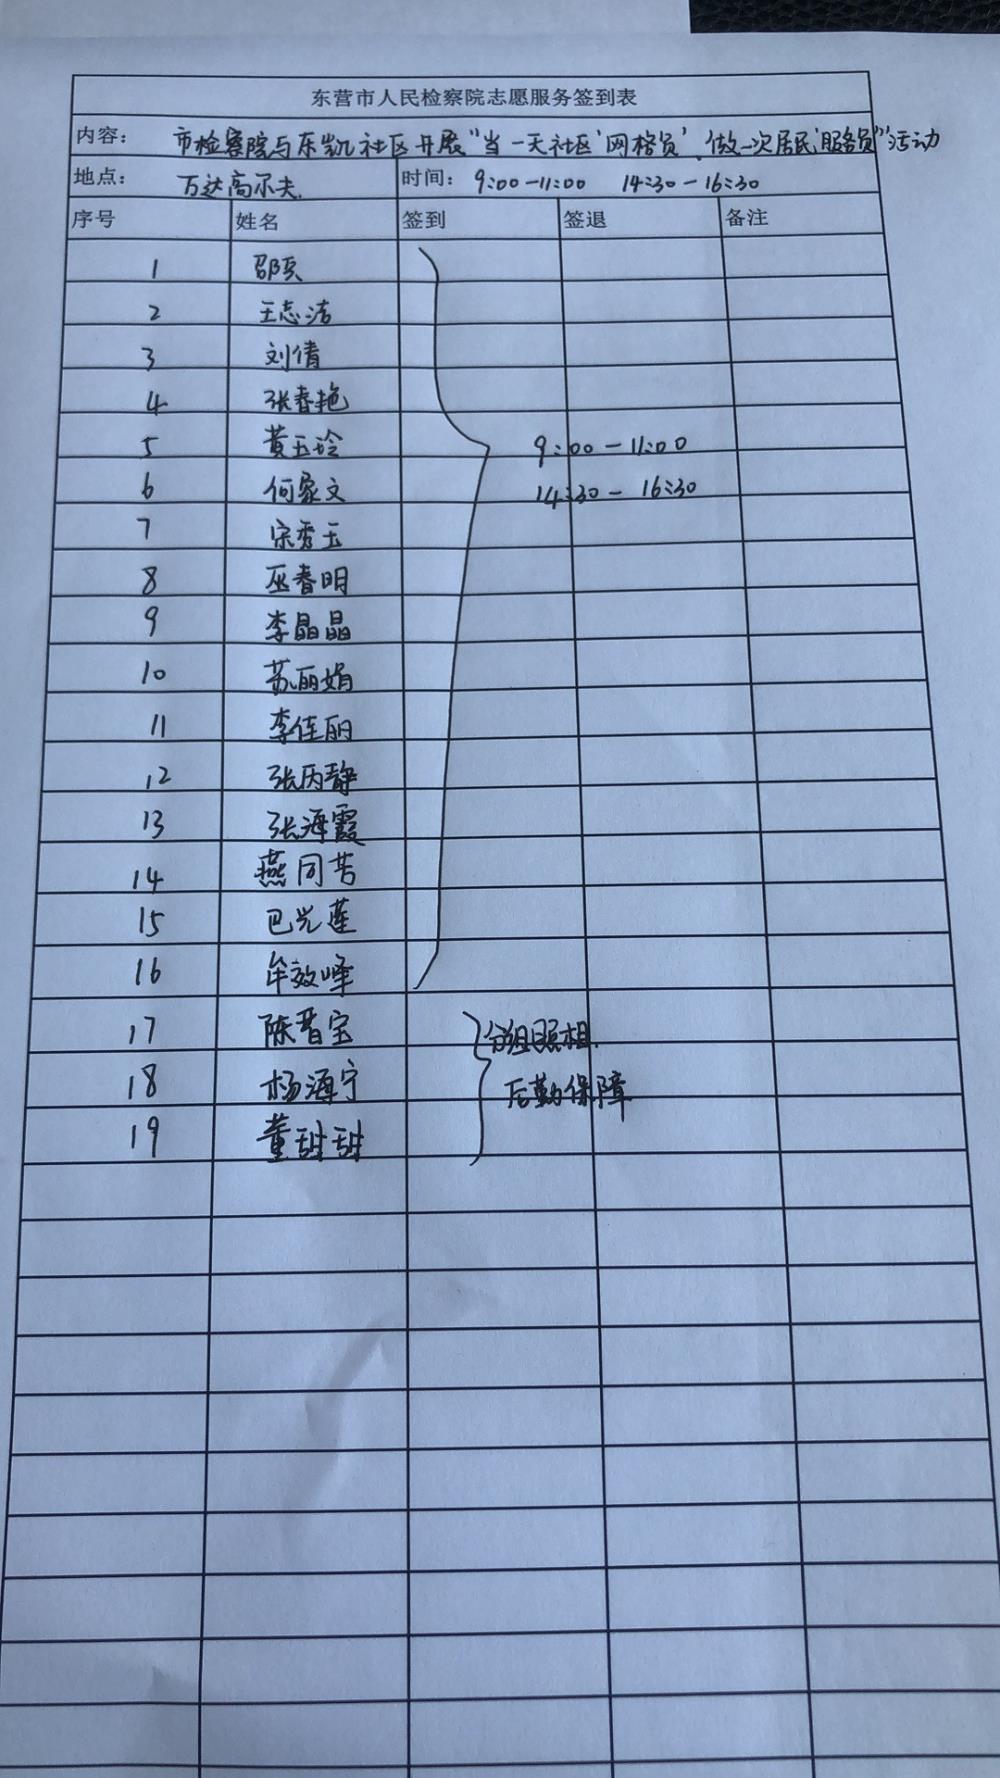 东营市人民检察院志愿服务签到表
内容： 市检察院与东凯社区开展“当一天社区‘网格员’、做一次居民‘服务员’”活动
地点： 万达高尔夫 时间： 9:00-11:00 14:30-16:30
序号 姓名 签到 签退 备注
1
2 王志洁
3 刘倩
4 张春艳
5 黄玉玲 9:00-11:00
6 何家文 14:30-16:30
7 宋秀玉
8 巫春明
9 李晶晶
10 苏丽娟
11 李佳丽
12 张丙静
13 张海霞
14 燕同芳
15 巴光莲
16 牟效峰
17 陈晋宝 分组照相
18 杨海宁 后勤保障
19 董甜甜